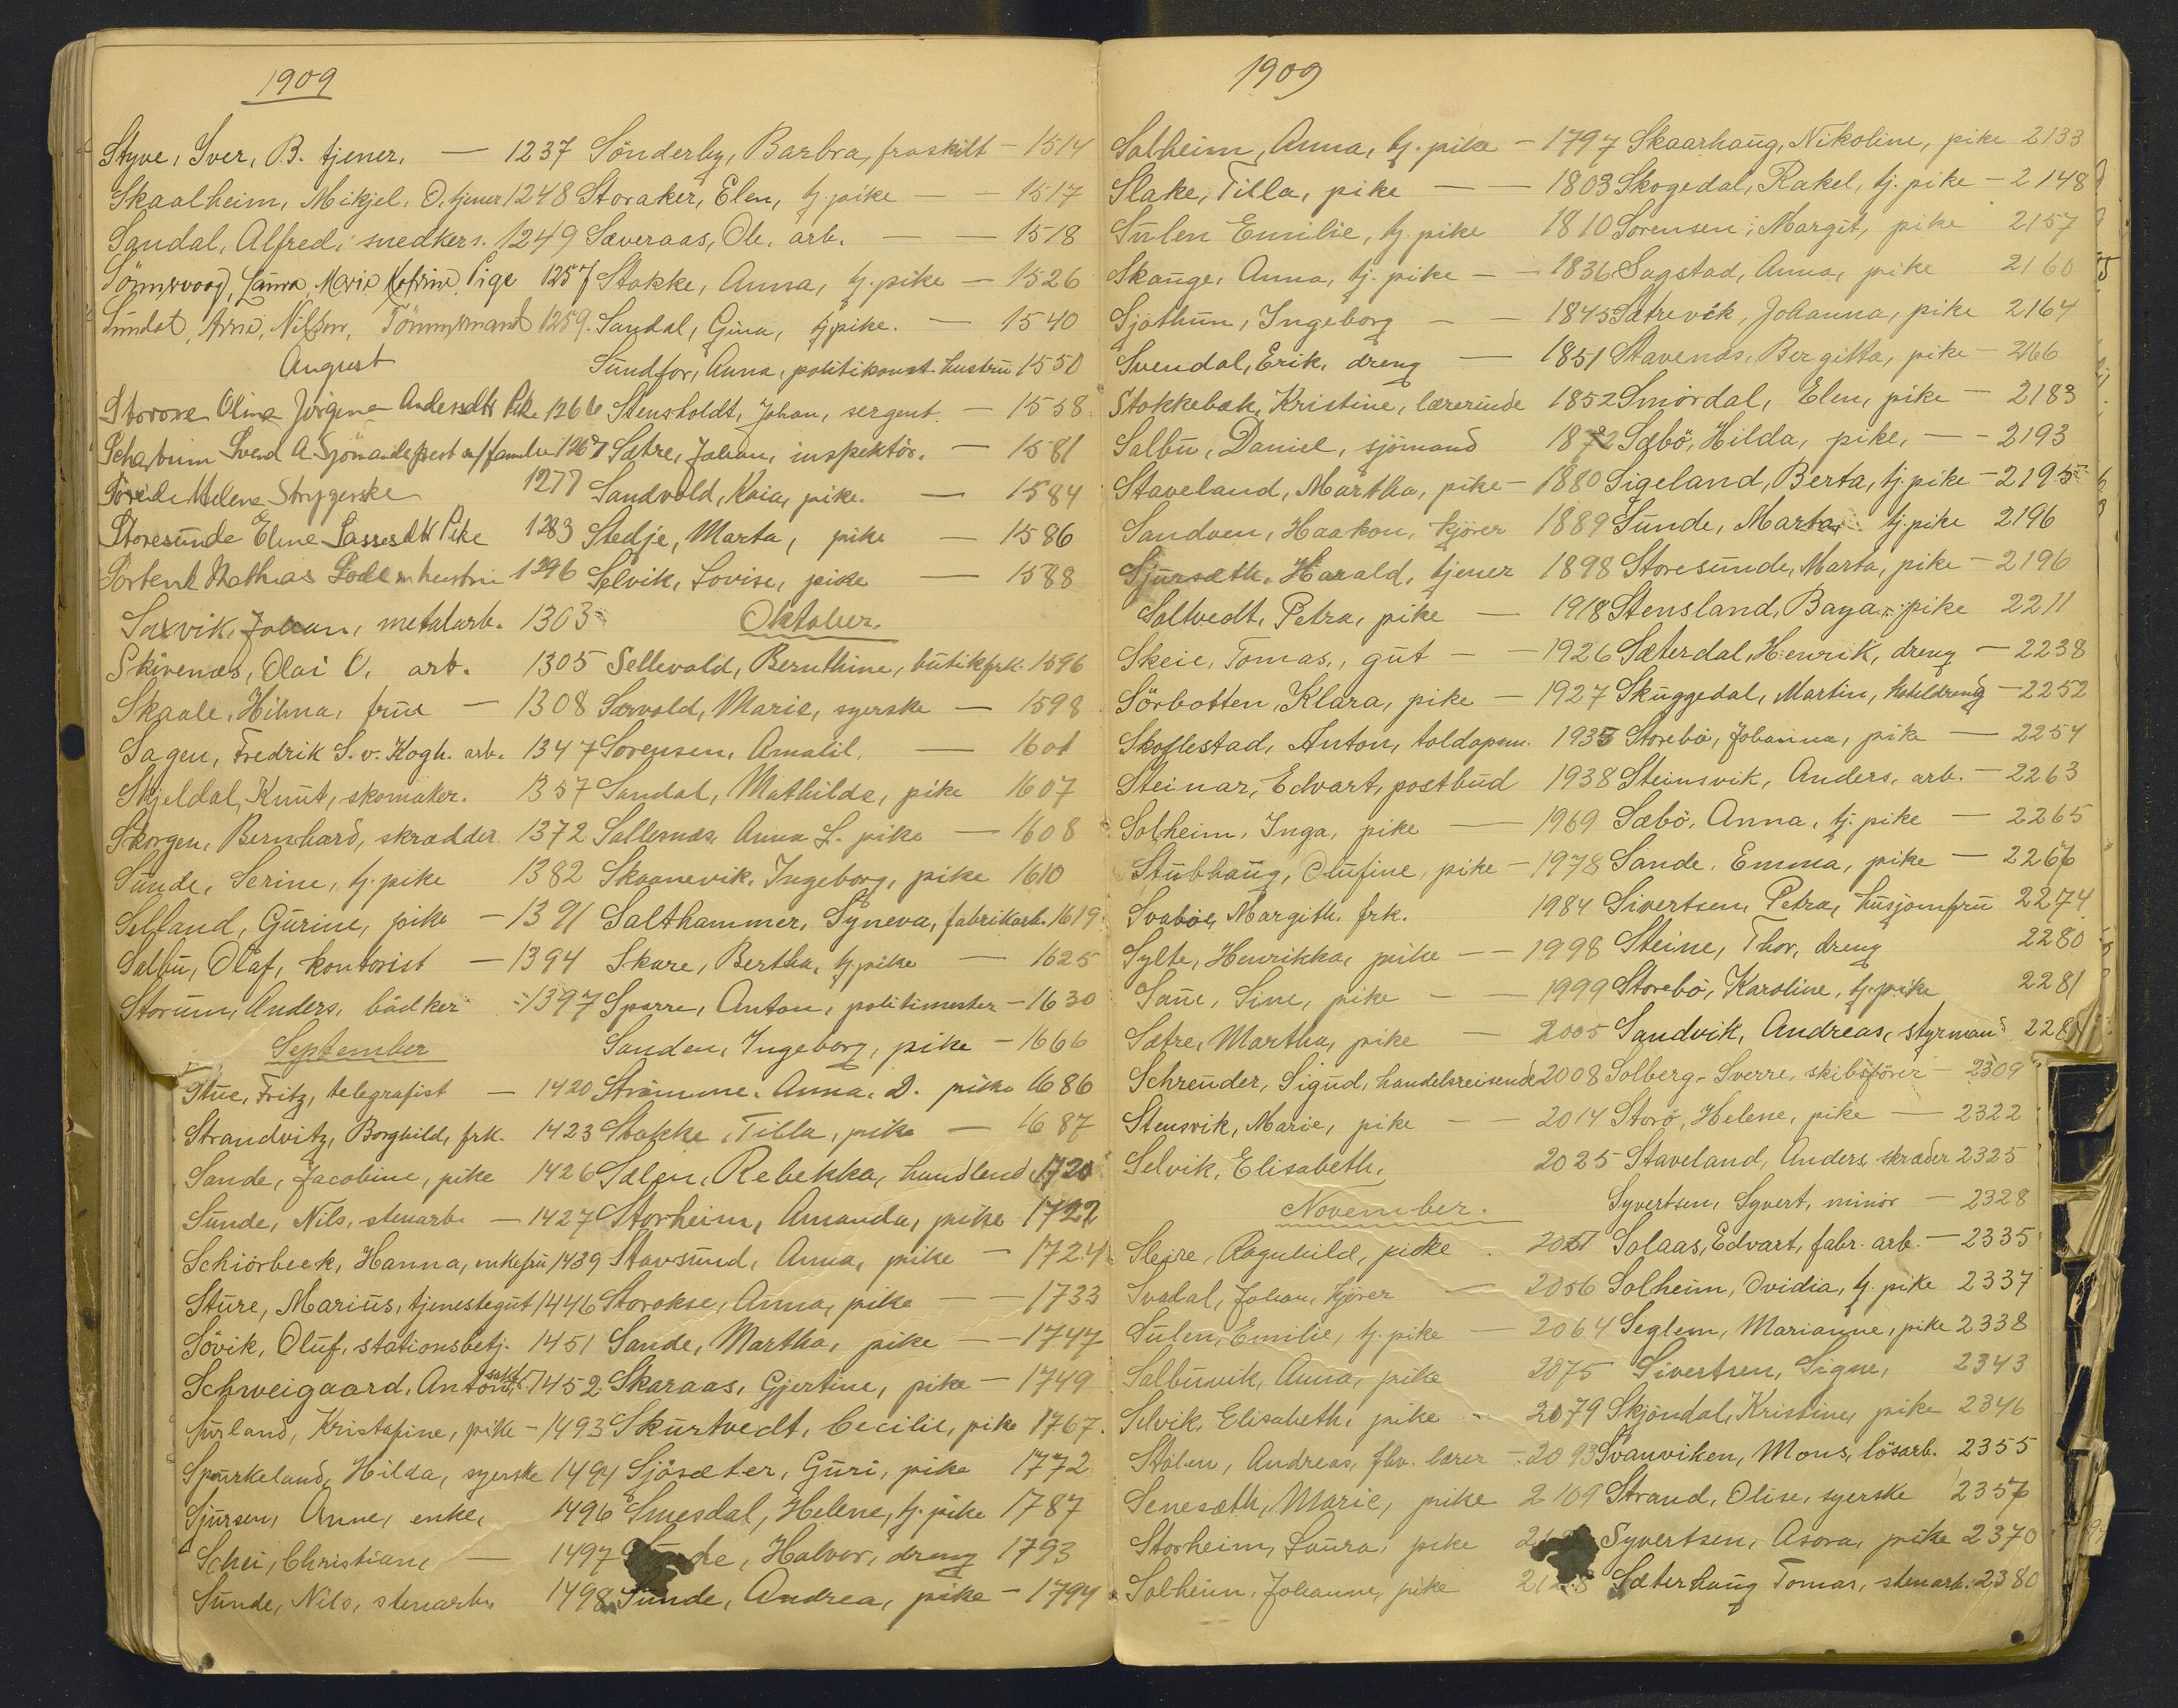 1909
Styve, Iver, B. tjener. — 1237
Skaalheim, Mikjel. O. tjener 1248
Sandal, Alfred, snedkers. 1249
Laura Marie Katrine Pige 1257
Sundet, Arne, Nilsen, Tömmermand 1259.
August
Storore Oline Jörgine Andersdtr Pike 1266
Svend A. Sjömandsprest m/familie 1267
Helene Strygerske 1277
Storesunde Eline Lassesdtr Pike 1283
Mathias m hustru 1296
Saxvik, Johan, metalarb. 1303
Skivenæs, Olai O. arb. 1305
Skaale, Hilma, frue — 1308
Sagen, Fredrik S. v. Kogh. arb. 1347
Skjeldal, Knut, skomaker. 1357
Skorgen, Bernhard, skrædder 1372
Sunde, Serine, tj. pike 1382
Selland, Gurine, pike — 1391
Salbu, Olaf, kontorist — 1394
Storum, Anders, bödker 1397
September
Stue, Fritz, telegrafist — 1420
Strandvitz, Borghild, frk. 1423
Sande, Jacobine, pike 1426
Sunde, Nils, stenarb. — 1427
Schiörbeck, Hanna, enkefru 1439
Sture, Marius, tjenestegut 1446
Sövik, Oluf, stationsbetj. 1451
Schweigaard, Anton, 1452
Surland, Kristofine, pike — 1493
Spurkeland, Hilda, syerske 1494
Sjursen, Anne, enke, 1496
Schei, Christian, — 1497
Sunde, Nils, stenarb. 1498
Sönderby, Barbra, fraskilt — 1514
Storaker, Elen, tj. pike — 1517
Sæveraas, Ole, arb. — — 1518
Stokke, Anna, tj. pike — 1526
Sandal, Gina, tj pike. — 1540
Sundfor, Anna, politikonst. hustru 1550
Stensholdt, Johan, sergent. — 1558
Sætre, Johan, inspektör. — 1581
Sandvold, Kaia, pike. — 1584
Stedje, Marta, pike — 1586
Selvik, Lovise, pike — 1588
Oktober.
Sellevold, Bernthine, butikfrk. 1596
Særvold, Marie, syerske — 1598
Sorensen, Amalie. — 1601
Sandal, Mathilde, pike 1607
Sallesnæs, Anna L. pike — 1608
Skaanevik, Ingeborg, pike 1610
Salthammer, Syneva, fabrikarb. 1619
Skare, Bertha, tj pike — 1625
Sparre, Anton, politimester — 1630
Sanden, Ingeborg, pike — 1666
Strömme, Anna. D. pike 1686
Stokke, Tilla, pike — 1687
Sælen, Rebekka, handlend 1720
Storheim, Amanda, pike 1722
Stavsund, Anna, pike — 1724
Storokse, Anna, pike — — 1733
Sande, Martha, pike — — 1747
Skaraas, Gjertine, pike — 1749
Skurtvedt, Cecilie, pike 1767.
Sjösæter, Guri, pike 1772
Smesdal, Helene, tj. pike 1787
Halvor, dreng 1793
Sunde, Andrea, pike — 1794
1909
Solheim, Anna, tj. pike — 1797
Slake, Tilla, pike — — 1803
Sulen Emilie, tj. pike 1810
Skauge, Anna, tj. pike — — 1836
Sjöthun, Ingeborg — — 1845
Svendal, Erik, dreng — 1851
Stokkebak, Kristine, lærerinde 1852
Salbu, Daniel, sjömand 1872
Staveland, Martha, pike — 1880
Sandven, Haakon, kjörer 1889
Sjursæth, Harald, tjener 1898
Saltvedt, Petra, pike — 1918
Skeie, Tomas, gut — — 1926
Sörbotten, Klara, pike — 1927
Skoflestad, Anton, toldopsm. 1935
Steinar, Edvart, postbud 1938
Solheim, Inga, pike — 1969
Stubhaug, Olufine, pike — 1978
Svaboe, Margith, frk. 1984
Sylte, Henrikka, pike — — 1998
Saue, Sine, pike — — 1999
Sætre, Martha, pike — 2005
Schreuder, Sigud, handelsreisende 2008
Stensvik, Marie, pike — — 2014
Selvik, Elisabeth, 2025
November.
Sleire, Ragnhild, pike 2051
Svadal, Johan, kjörer — 2056
Sulen, Emilie, tj. pike — 2064
Salbuvik, Anna, pike 2075
Selvik, Elisabeth, pike — 2079
Stölen, Andreas, fhv. lærer — 2093
Senesæth, Marie, pike 2109
Storheim, Laura, pike
Solheim, Johanne, pike 2128
Skaarhaug, Nikoline, pike 2133
Skogedal, Rakel, tj. pike — 2148
Sorensen, Margit, pike 2157
Sagstad, Anna, pike 2160
Sætrevik, Johanna, pike 2164
Stavenæs, Bergitta, pike — 2166
Smördal, Elen, pike — 2183
Sæbö, Hilda, pike, — — 2193
Sigeland, Berta, tj. pike — 2195
Sunde, Marta, tj. pike 2196
Storesunde, Marta, pike — 2196
Stensland, Baya, pike 2211
Sæterdal, Henrik, dreng — 2238
Skuggedal, Martin, hoteldreng — 2252
Storebö, Johanna, pik — 2254
Steinsvik, Anders, arb. — 2263
Sæbö, Anna, tj. pike — 2265
Sande, Emma, pike — 2266
Sivertsen, Petra, husjomfru 2274
Steine, Thor, dreng 2280
Storebö, Karoline, tj. pike 2281
Sandvik, Andreas, styrmand
Solberg, Sverre, skibsförer — 2309
Storö, Helene, pike — 2322
Staveland, Anders, skræder 2325
Syvertsen, Syvert, minör — 2328
Solaas, Edvart, fabr. arb. — 2335
Solheim, Ovidia, tj. pike 2337
Seglem, Marianne, pike 2338
Sivertsen, Signe, 2343
Skjöndal, Kristine, pike 2346
Svanviken, Mons, lösarb. 2355
Strand, Olise, syerske 2356
Syvertsen, Asora, pike 2370
Sæterhaug Tomas, stenarb. 2380